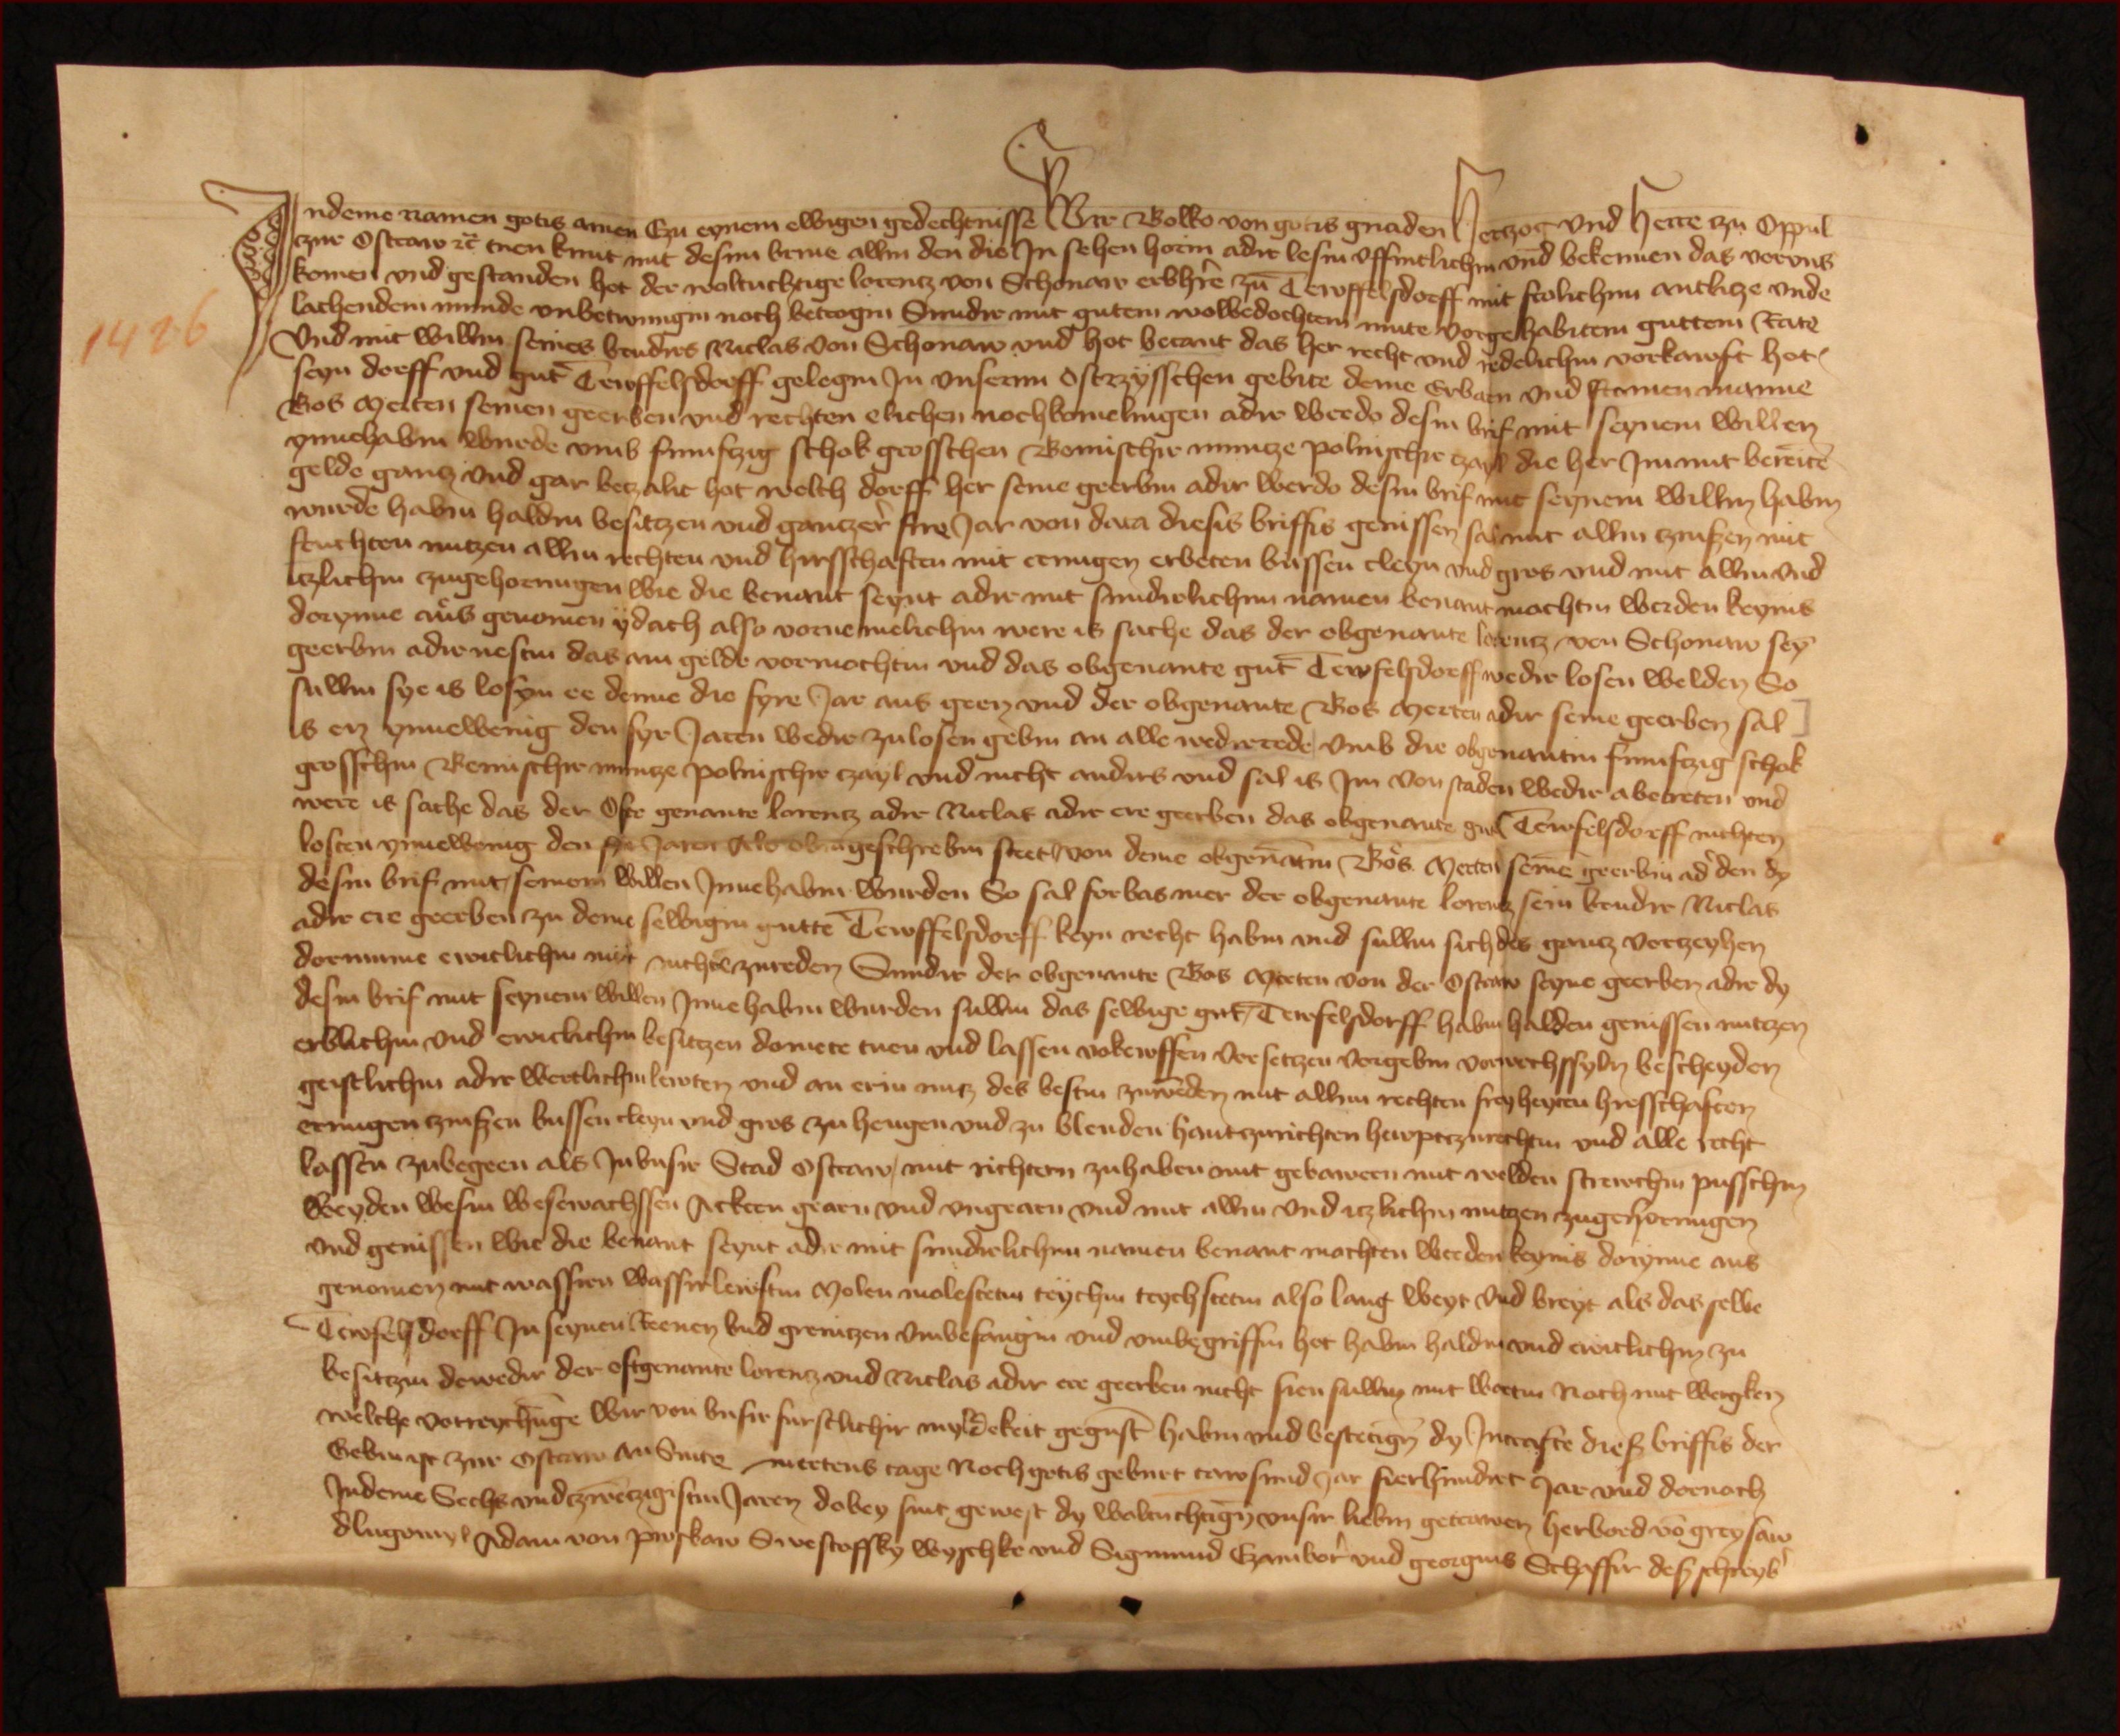 Indeme namen gotis amen Czu eynem ewigen gedechtnisse Wir Bolko von gotis gnaden Herczog und Herre zu Oppul
zur Ostraw etc tuen kunt mit desim brive allin den die In sehen horin adir lesin Uffintlichin und bekennen das vor uns
komen und gestanden hot der woltuchtige lorencz von Schonaw erbhre zu Tewffelsdorff mit frolichim antlicze unde
lachendem munde unbetwungin noch betrogin Sundir mit gutem wolbedochtem mute vorgehabitem guttem Rate
Und mit willin seines brudirs Niclas von Schonaw und hot becant das her recht und redelichin vorkawft hot
seyn dorff und gut Tewffelsdorff gelegin In unserm Ostrzysschen gebite deme Erbarn und fromen manne
Bos Merten seinen geerben und rechten elichen nochkomelingen adir werdo desin brif mit seynem willen
ynnehabin wurde umb funfczig schok grosschen Bemischir muncze polnischir czayl die her Im mit bereite
gelde gancz und gar beczalit hot welch dorff her seine geerbin adir werdo desin brif mit seynem willin habin
wurde habin haldin besitzen und ganczer fire Jar von data diesis briffis genissen sal mit allin czinszen mit
fruchten nutzen allin rechten und hirsschaften mit erungen erbeten bussen cleyn und gros und mit allin und
itzlichin zugehorungen wie die benant seynt adir mit sundirlichin namen benant mochtin werden keyns
dorynne aus genomen ydach also vornemelichin were is sache das der obgenante lorencz von Schonaw sey
geerbin adir nestin das am gelde vormochtin und das obgenante gut Tewfelsdorff wedir losen welden So
sullin sye is losyn ee denne die fyre Jar aus geen und der obgenante Bos Merten adir seine geerben sal
is en ynnewenig den fyr Jaren wedir zu losen gebin an alle wedirrede umb die obgenantin funfczig schok
grosschin Bemischir muncze polnischir czayl und nicht andirs und sal is Im von staden wedir abetreten und
were is sache das der Ofte genante lorencz adir Niclas adir ere geerben das obgenante gut Tewfelsdorff nichten
losten ynnewenig den fyr Jaren Als oben geschrebin steet von deme obgenantin Bos Merten seine geerbin adir den dy
desin brif mit seinem willen Innehabin wurden So sal forbas mer der obgenante lorencz sein brudir Niclas
adir ere geerben zu deme selbigin gutte Tewffelsdorff keyn recht habin und sullin sich des gancz vorczeyhen
dorumme ewiclichin nichte zureden Sundir der obgenante Bos Merten von der Ostraw seyne geerben adir dy
desin brif mit seynem willen Inne habin wurden sullin das selbige gut Tewfelsdorff habin halden genissen nutczen
erblichin und ewiclichin besitczen domete tuen und lassen vorkewffen vorsetczen vorgebin vorwechssyln bescheyden
geistlichin adir wertlichin lewten und an erin nucz des bestin zuwenden mit allin rechten freyheyten hirsschaften
erungen czinszen bussen cleyn und gros zu hengen und zu blenden hant zurichten hewpt zurichtin und alle recht
lassen zubegeen als In unsir Stad Ostraw mit richtern zuhaben mit gebawern mit welden strewchin pusschin
weyden wesin wesewachssen Ackern gearn und ungearn und mit allin und itzlichin nutzen zugehorungen
und genissen wie die benant seynt adir mit sundirlichin namen benant mochten werden keyns dorynne aus
genomen mit wassirn wassirlewftin Molen molestetin teychin teychstetin also lang weyt und breyt als das selbe
Tewfelsdorff In seynen Reenen und grenitzen umbefangin und umbegriffin hot habin haldin und ewiclichin zu
besitczin dowedir der oftgenante lorencz und Niclas adir ere geerben nicht sien sullin mit wortin Noch mit wergken
welche vorreychunge wir von unsir furstlichir myldekeit gegunst habin und bestetigin dy Incrafte diesz briffis der
Gebin ist zur Ostraw an Sinte mertens tage Noch gotis geburt tawsund Jar fierhundirt Jar und dornoch
Indeme Sechs und czwenczigistin Jaren dobey sint gewest dy waltuchtign unsir liebin getrawen herbord von greysaw
dlugomyl Adam von proskaw Swestoffsky wyschke und Sigmund Czambor und georgius Schaffir desz schreybir
1426